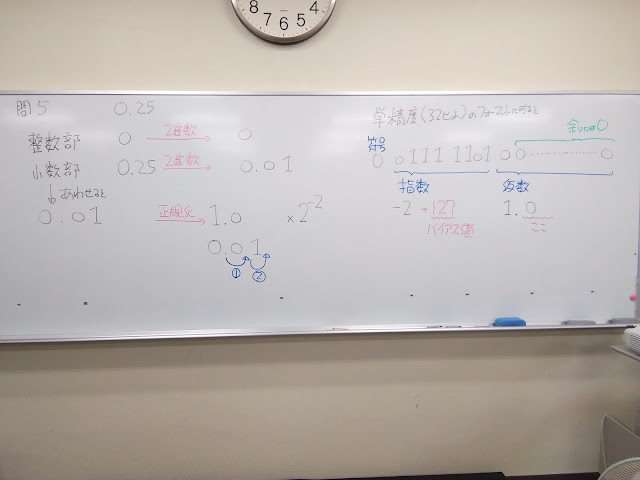 8 7 6 5 4
問5 0.25
整数部 0 2進数 0
小数部 0.25 2進数 0.01
↓あわせると
0.01 正規化 1.0 × 2⁻²
0.01
① ②
単精度(32ビット)のフォーマットにすると
余りは0
符号
0 0111 1101 00…………0
指数 仮数
-2 +127 1.0
バイアス値 ここ